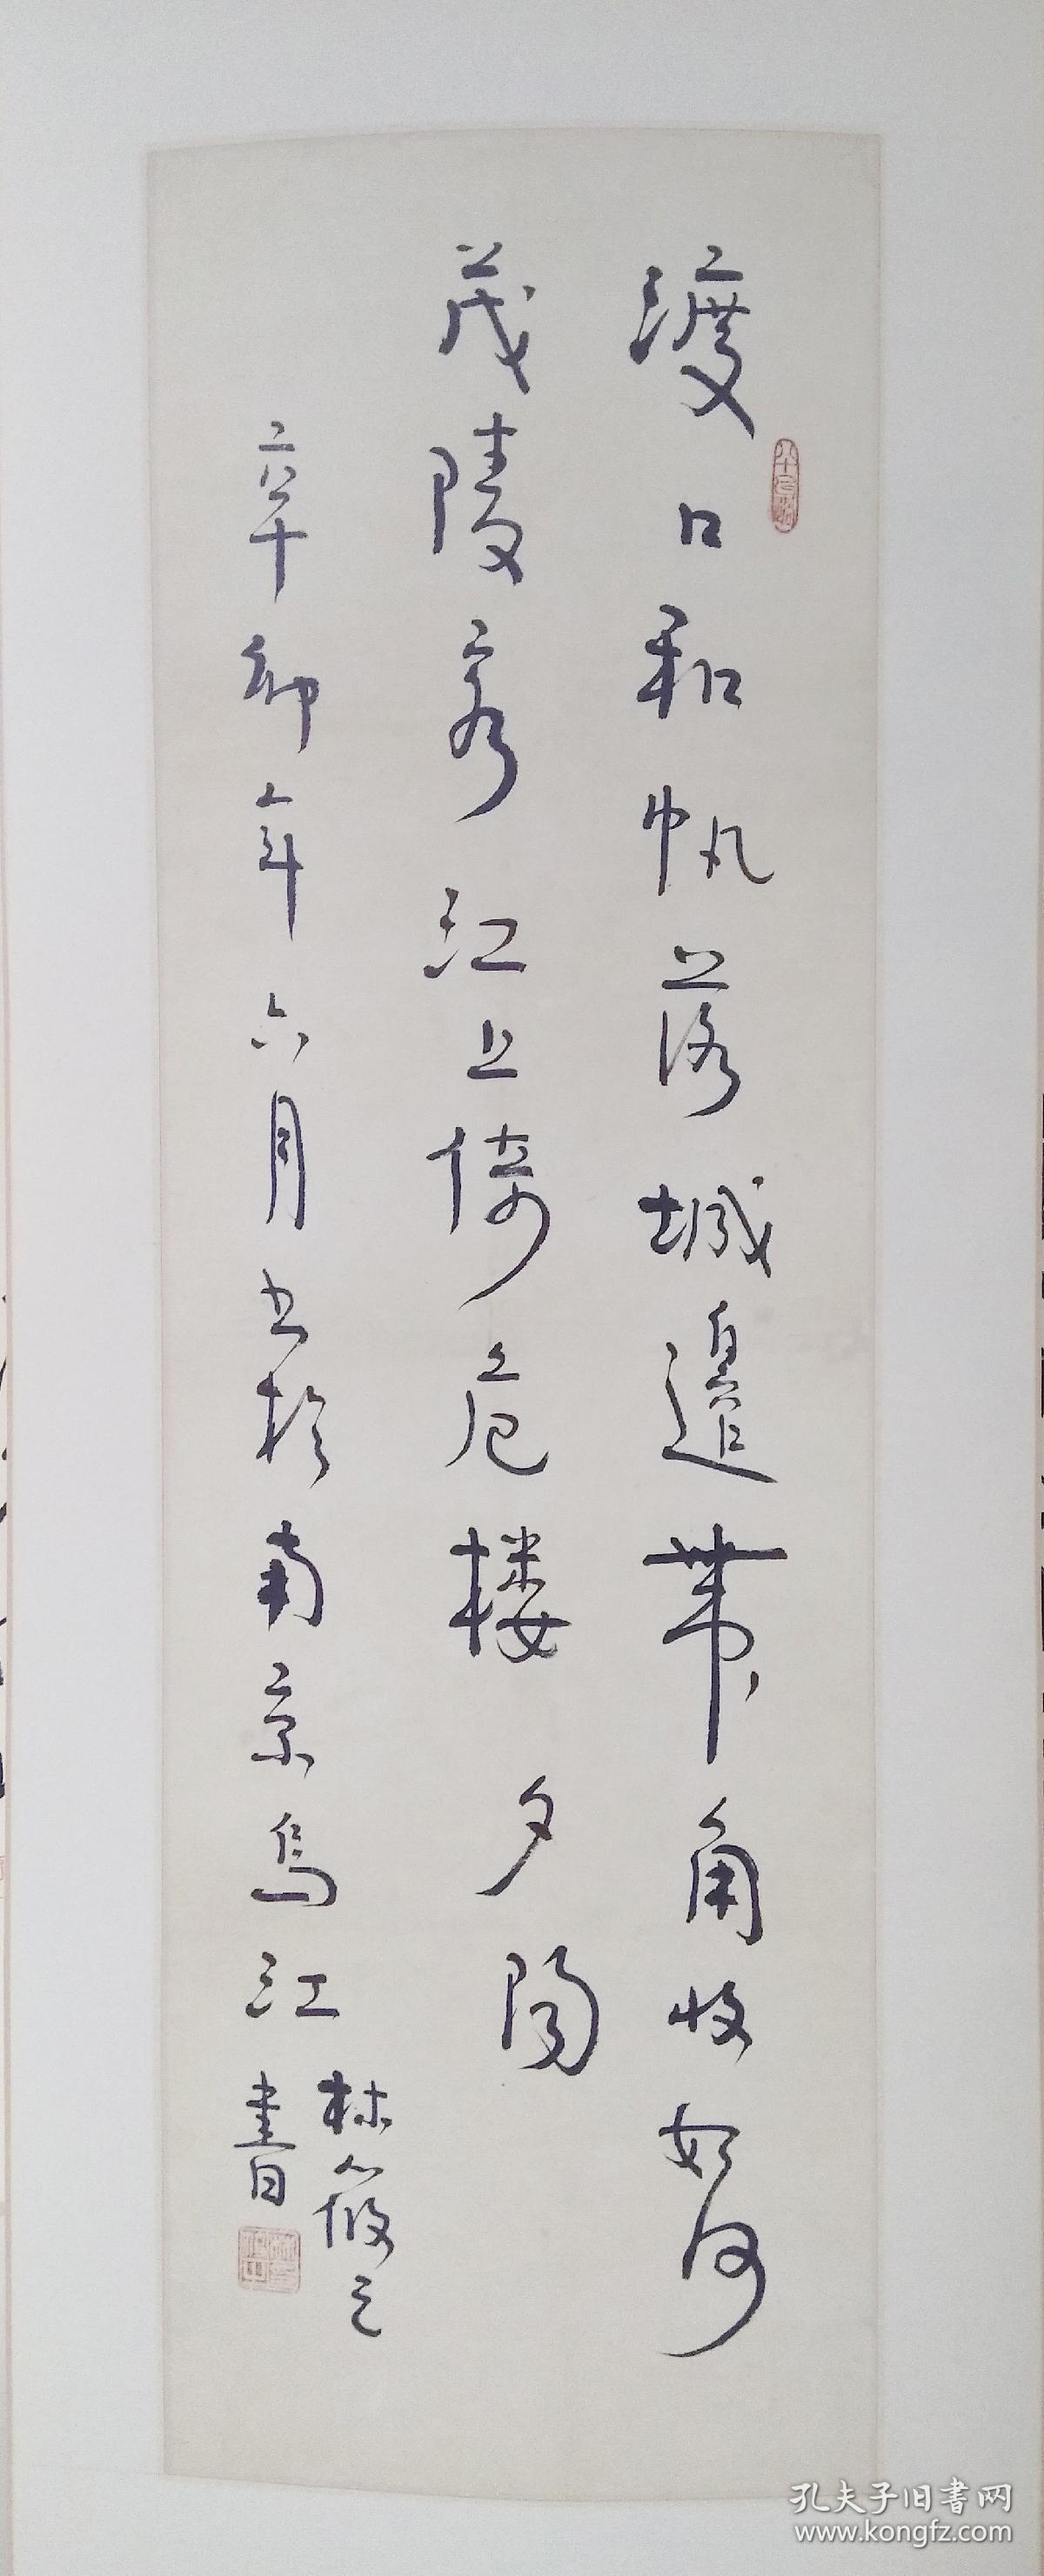 渡口和帆落城邉带角收如何
茂陵客江上倚危楼夕陽
辛卯年六月书於南京烏江
林筱之
書
孔夫子旧書网
www.kongfz.com